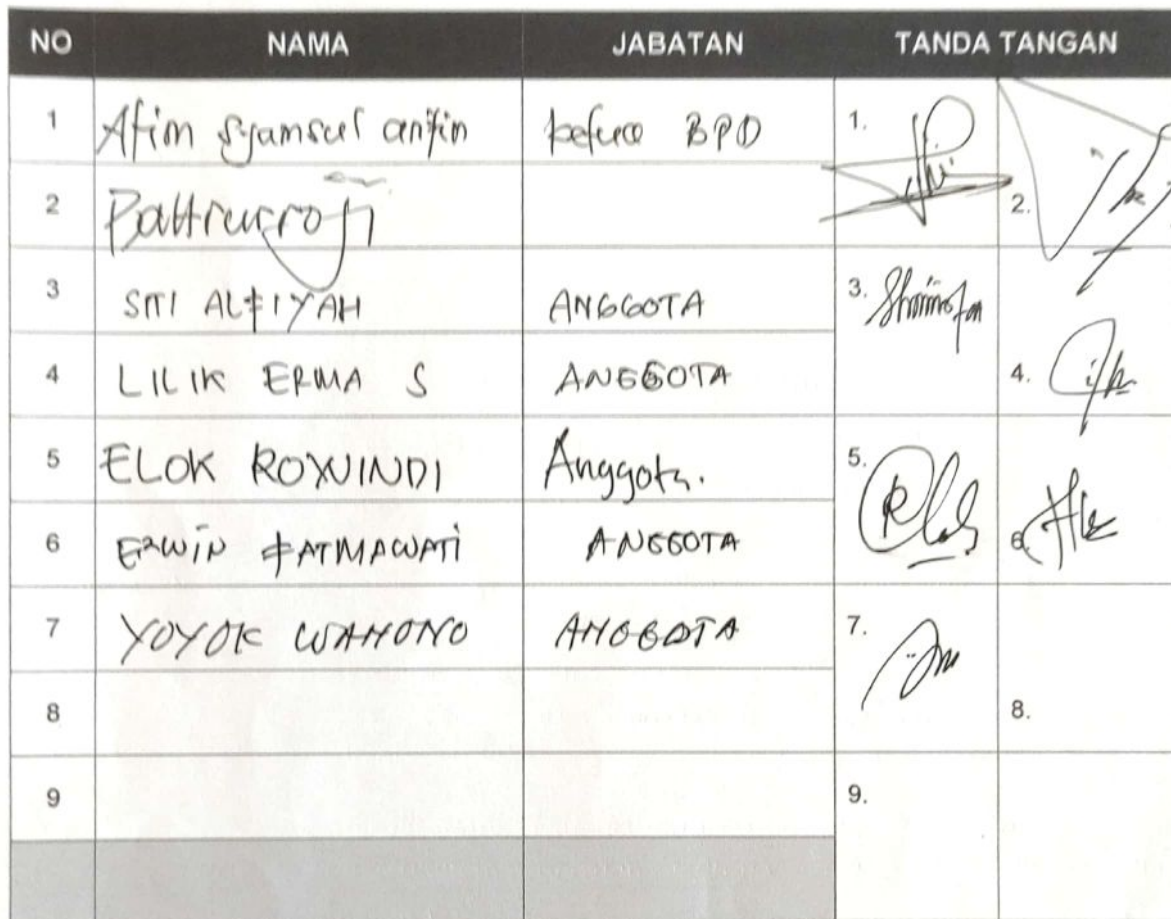 NO NAMA JABATAN TANDA TANGAN
1 Afim Syamsul arifin ketua BPD 1.
2 2.
3 SITI ALFIYAH ANGGOTA 3.
4 LILIK ERMA S ANGGOTA 4.
5 ELOK ROWINDI Anggota. 5.
6 ERWIN FATMAWATI ANGGOTA 6.
7 YOYOK WAHONO ANGGOTA 7.
8 8.
9 9.